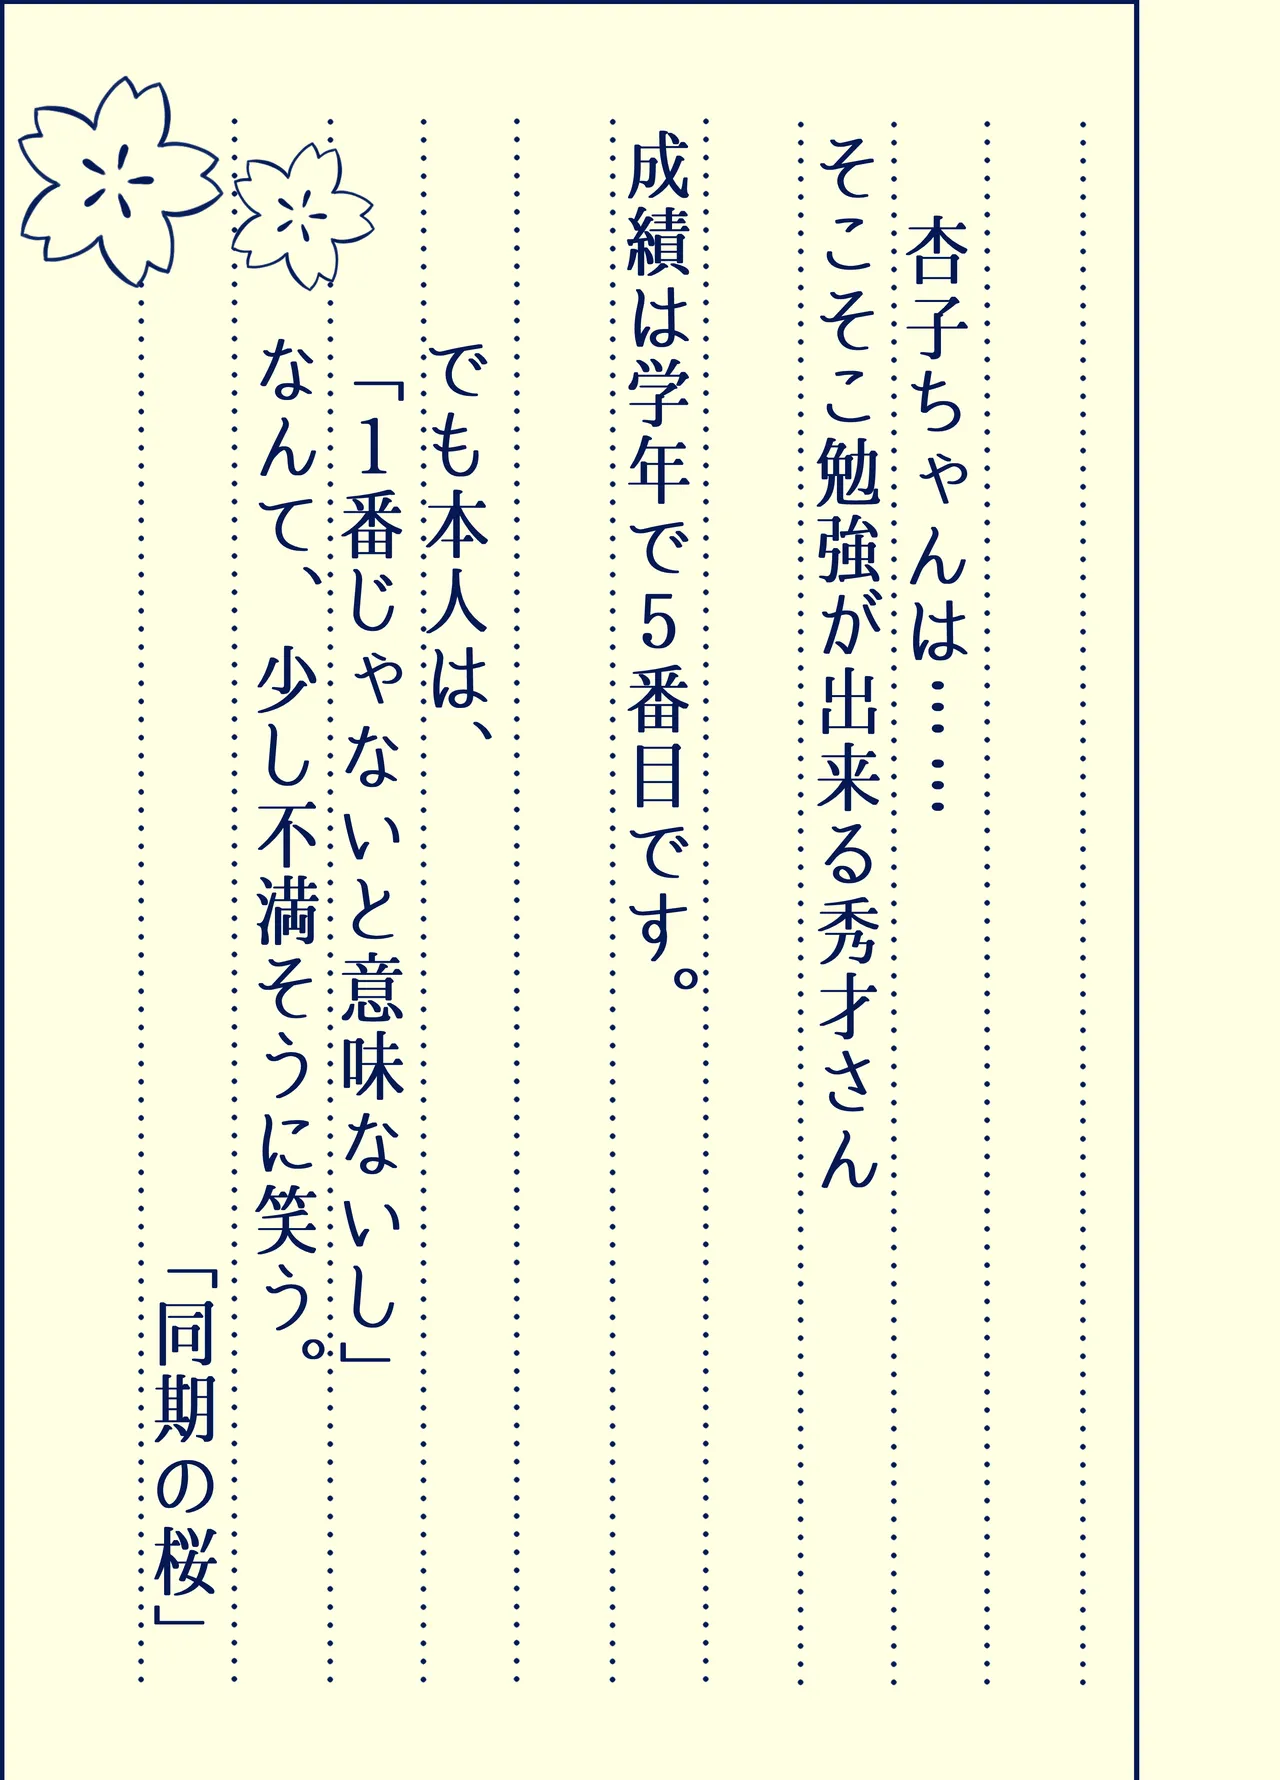 杏子ちゃんは……
そこそこ勉強が出来る秀才さん
成績は学年で5番目です。
でも本人は、
「1番じゃないと意味ないし」
なんて、少し不満そうに笑う。
「同期の桜」